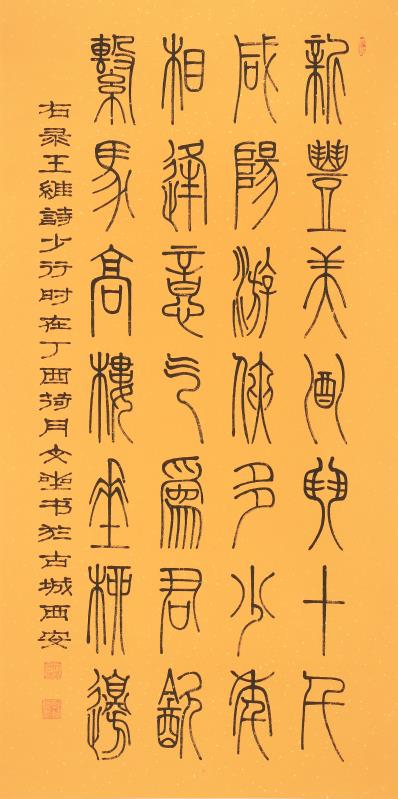 新豐美酒斗十千
咸陽游俠多少年
相逢意气爲君飲
繫馬高樓垂柳邊
右录王維詩少行时在丁酉荷月文书於古城西安